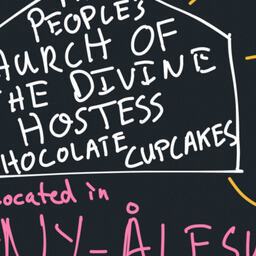 PEOPLE'S
HURCH OF
HE DIVINE
HOSTESS
HOCOLATE CUPCAKES
ocated in
NY-ÅLESU